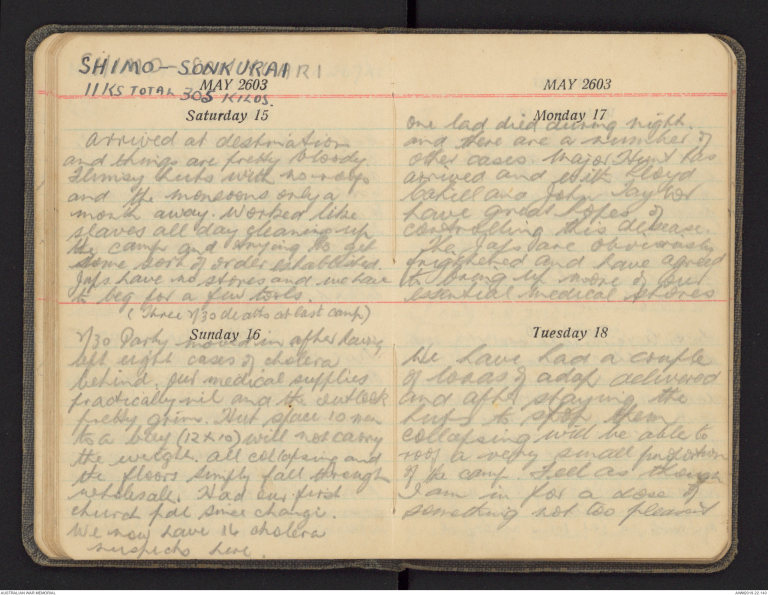 SHIMO-SONKURAI
11 KS TOTAL 305 KILOS.
MAY 2603
Saturday 15
Arrived at destination
and things are pretty bloody.
Flimsy huts with no roofs
and the monsoons only a
month away. Worked like
slaves all day cleaning up
the camp and trying to get
some sort of order established.
Japs have no stores and we have
to beg for a few tools.
(Three 2/30 deaths at last camp)
Sunday 16
2/30 Party moved in after having
left eight cases of cholera
behind. Our medical supplies
practically nil and the outlook
pretty grim. Hut space 10 men
to a bay (12 x 10) will not carry
the weight. All collapsing and
the floors simply fall through
wholesale. Had our first
church pde since Changi.
We now have 16 cholera
suspects here.
MAY 2603
Monday 17
One lad died during night.
and there are a number of
other cases. Major Hunt has
arrived and with Lloyd
Cahill and John Taylor
have great hopes of
controlling this disease.
The Japs are obviously
frightened and have agreed
to bring up more of our
essential medical stores
Tuesday 18
We have had a couple
of loads of adap delivered
and after staying the
huts to stop them
collapsing will be able to
roof a very small proportion
of the camp. Feel as though
I am in for a dose of
something not too pleasant
AUSTRALIAN WAR MEMORIAL